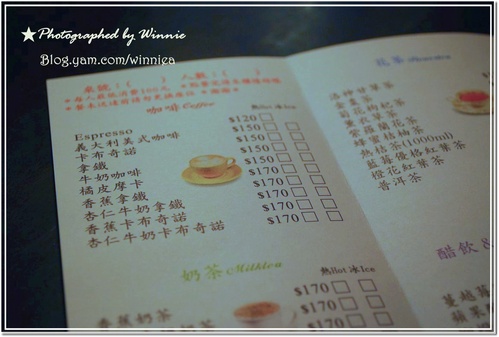 Photographed by Winnie
Blog.yam.com/winniea
桌號：（ ） 人數：（ ）
咖啡 Coffee
熱Hot 冰Ice
Espresso $120
義大利美式咖啡 $150
卡布奇諾 $150
拿鐵 $150
牛奶咖啡 $150
橘皮摩卡 $170
香蕉拿鐵 $170
杏仁牛奶拿鐵 $170
香蕉卡布奇諾 $170
杏仁牛奶卡布奇諾 $170
奶茶 Milktea
熱Hot 冰Ice
香蕉奶茶 $170
$170
$170
花茶
洛神甘草茶
黃耆茶
菊花枸杞茶
薰衣草茶
紫羅蘭花茶
蜂蜜菊柚茶
熱桔茶(1000ml)
藍莓優格紅葉茶
橙花紅葉茶
普洱茶
醋飲 &
蔓越莓
蘋果